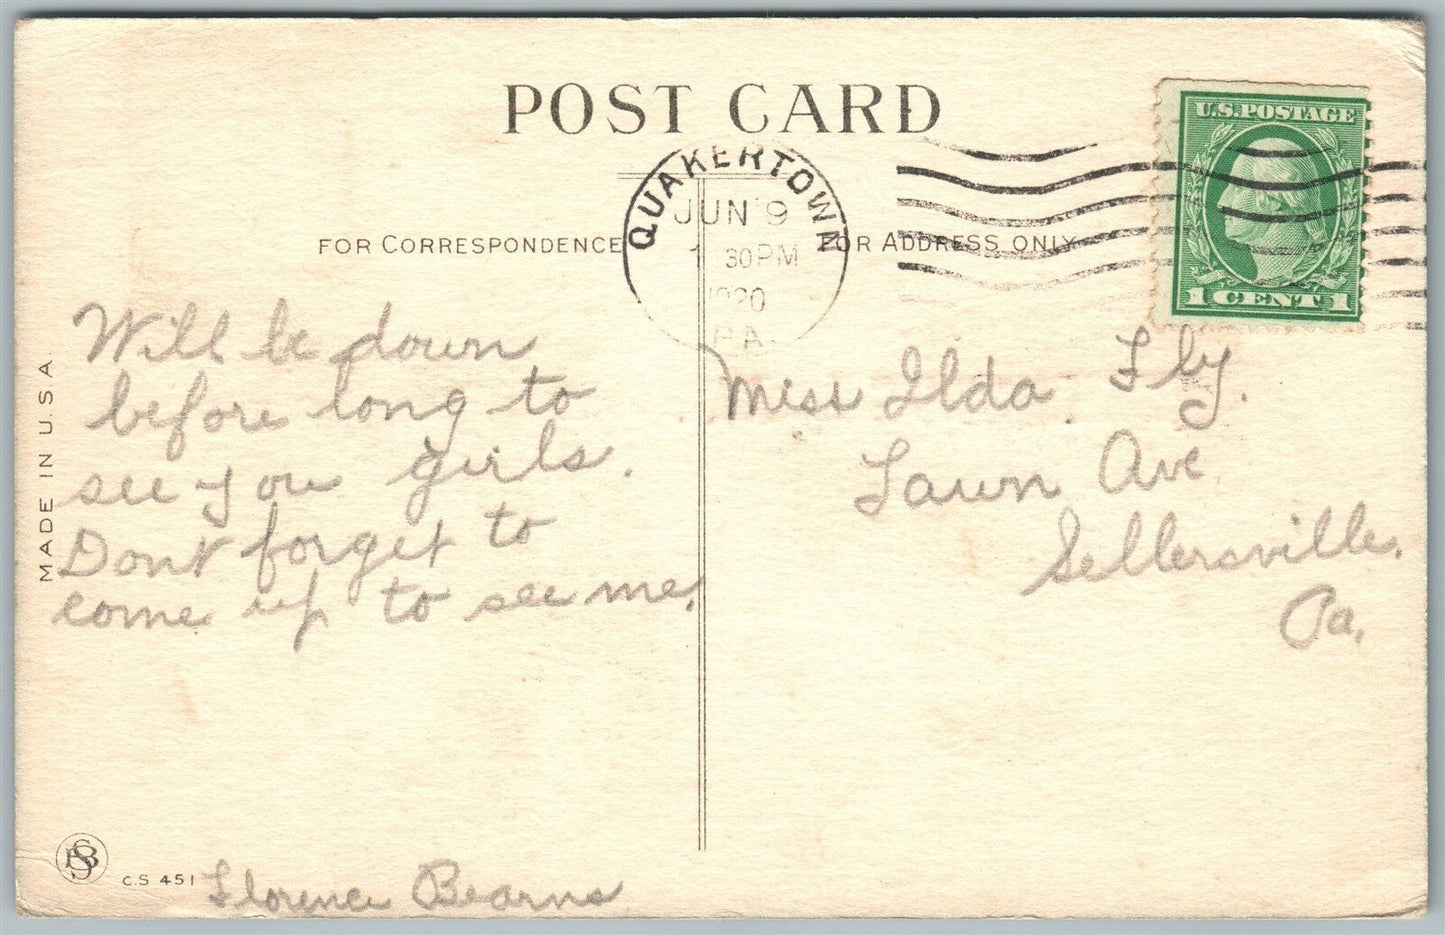 POST CARD
FOR CORRESPONDENCE
FOR ADDRESS ONLY
QUAKERTOWN
JUN 9
1 30 PM
1920
PA.
U.S. POSTAGE
1 CENT 1
Will be down
before long to
see you girls.
Dont forget to
come up to see me.
Florence Bearns
Miss Ilda Fly.
Lawn Ave
Sellersville.
Pa.
MADE IN U.S.A
BS
C.S 451